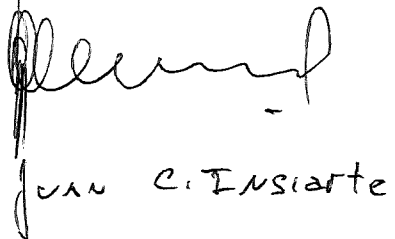 Juan C. Insiarte